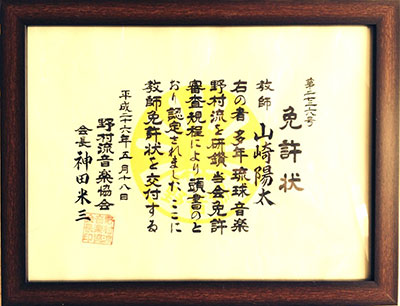 第二三六号
免許状
教師 山崎陽太
右の者多年琉球音楽
野村流を研鑽当会免許
審査規程により頭書のと
おり認定されました ここに
教師免許状を交付する
平成二十六年五月十八日
野村流音楽協会
会長 神田米三